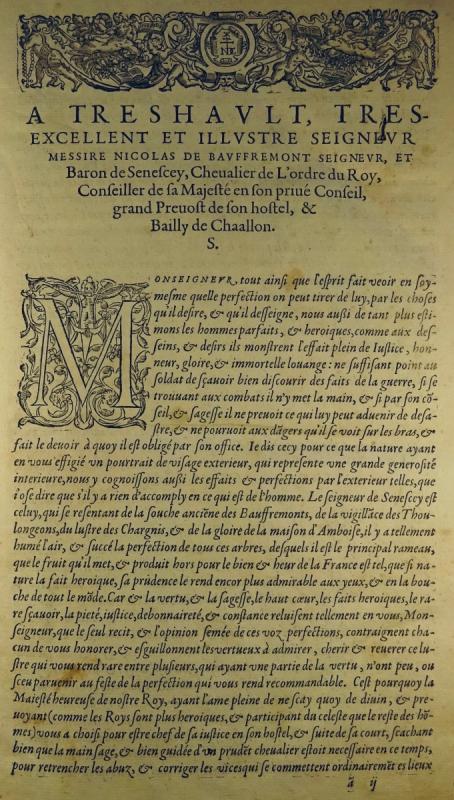 A TRESHAVLT, TRES-
EXCELLENT ET ILLVSTRE SEIGNEVR
MESSIRE NICOLAS DE BAVFFREMONT SEIGNEVR, ET
Baron de Seneſcey, Cheualier de L'ordre du Roy,
Conſeiller de ſa Majeſté en ſon priué Conſeil,
grand Preuoſt de ſon hoſtel, &
Bailly de Chaallon.
S.
MONSEIGNEVR, tout ainſi que l'eſprit fait veoir en ſoy-
meſme quelle perfection on peut tirer de luy, par les choſes
qu'il deſire, & qu'il deſſeigne, nous auſsi de tant plus eſti-
mons les hommes parfaits, & heroiques, comme aux deſ-
ſeins, & deſirs ils monſtrent l'effait plein de Iuſtice, hon-
neur, gloire, & immortelle louange: ne ſuffiſant point au
ſoldat de ſçauoir bien diſcourir des faits de la guerre, ſi ſe
trouuant aux combats il n'y met la main, & ſi par ſon cō-
ſeil, & ſageſſe il ne preuoit ce qui luy peut aduenir de deſa-
ſtre, & ne pouruoit aux dāgers qu'il ſe voit ſur les bras, &
fait le deuoir à quoy il eſt obligé par ſon office. Ie dis cecy pour ce que la nature ayant
en vous effigié vn pourtrait de viſage exterieur, qui repreſente vne grande generoſité
interieure, nous y cognoiſſons auſsi les effaits & perfections par l'exterieur telles, que
i'oſe dire que s'il y a rien d'accomply en ce qui eſt de l'homme. Le ſeigneur de Seneſcey eſt
celuy, qui ſe reſentant de la ſouche anciēne des Bauffremonts, de la vigilāce des Thou-
longeons, du luſtre des Chargnis, & de la gloire de la maiſon d'Amboiſe, il y a tellement
humé l'air, & ſuccé la perfection de tous ces arbres, deſquels il eſt le principal rameau,
que le fruit qu'il met, & produit hors pour le bien & heur de la France eſt tel, que ſi na-
ture la fait heroique, ſa prudence le rend encor plus admirable aux yeux, & en la bou-
che de tout le mōde. Car & la vertu, & la ſageſſe, le haut cœur, les faits heroiques, le ra-
re ſçauoir, la pieté, iuſtice, debonnaireté, & conſtance reluiſent tellement en vous, Mon-
ſeigneur, que le ſeul recit, & l'opinion ſemée de ces voz perfections, contraignent cha-
cun de vous honorer, & eſguillonnent les vertueux à admirer, cherir & reuerer ce lu-
ſtre qui vous rend rare entre pluſieurs, qui ayant vne partie de la vertu, n'ont peu, ou
ſceu paruenir au feſte de la perfection qui vous rend recommandable. C'eſt pourquoy la
Maieſté heureuſe de noſtre Roy, ayant l'ame pleine de ne ſcay quoy de diuin, & pre-
uoyant (comme les Roys ſont plus heroiques, & participant du celeſte que le reſte des hō-
mes) vous a choiſi pour eſtre chef de ſa iuſtice en ſon hoſtel, & ſuite de ſa court, ſcachant
bien que la main ſage, & bien guidée d'vn prudēt cheualier eſtoit neceſſaire en ce temps,
pour retrencher les abuz, & corriger les vices qui ſe commettent ordinairemēt es lieux
ā ij